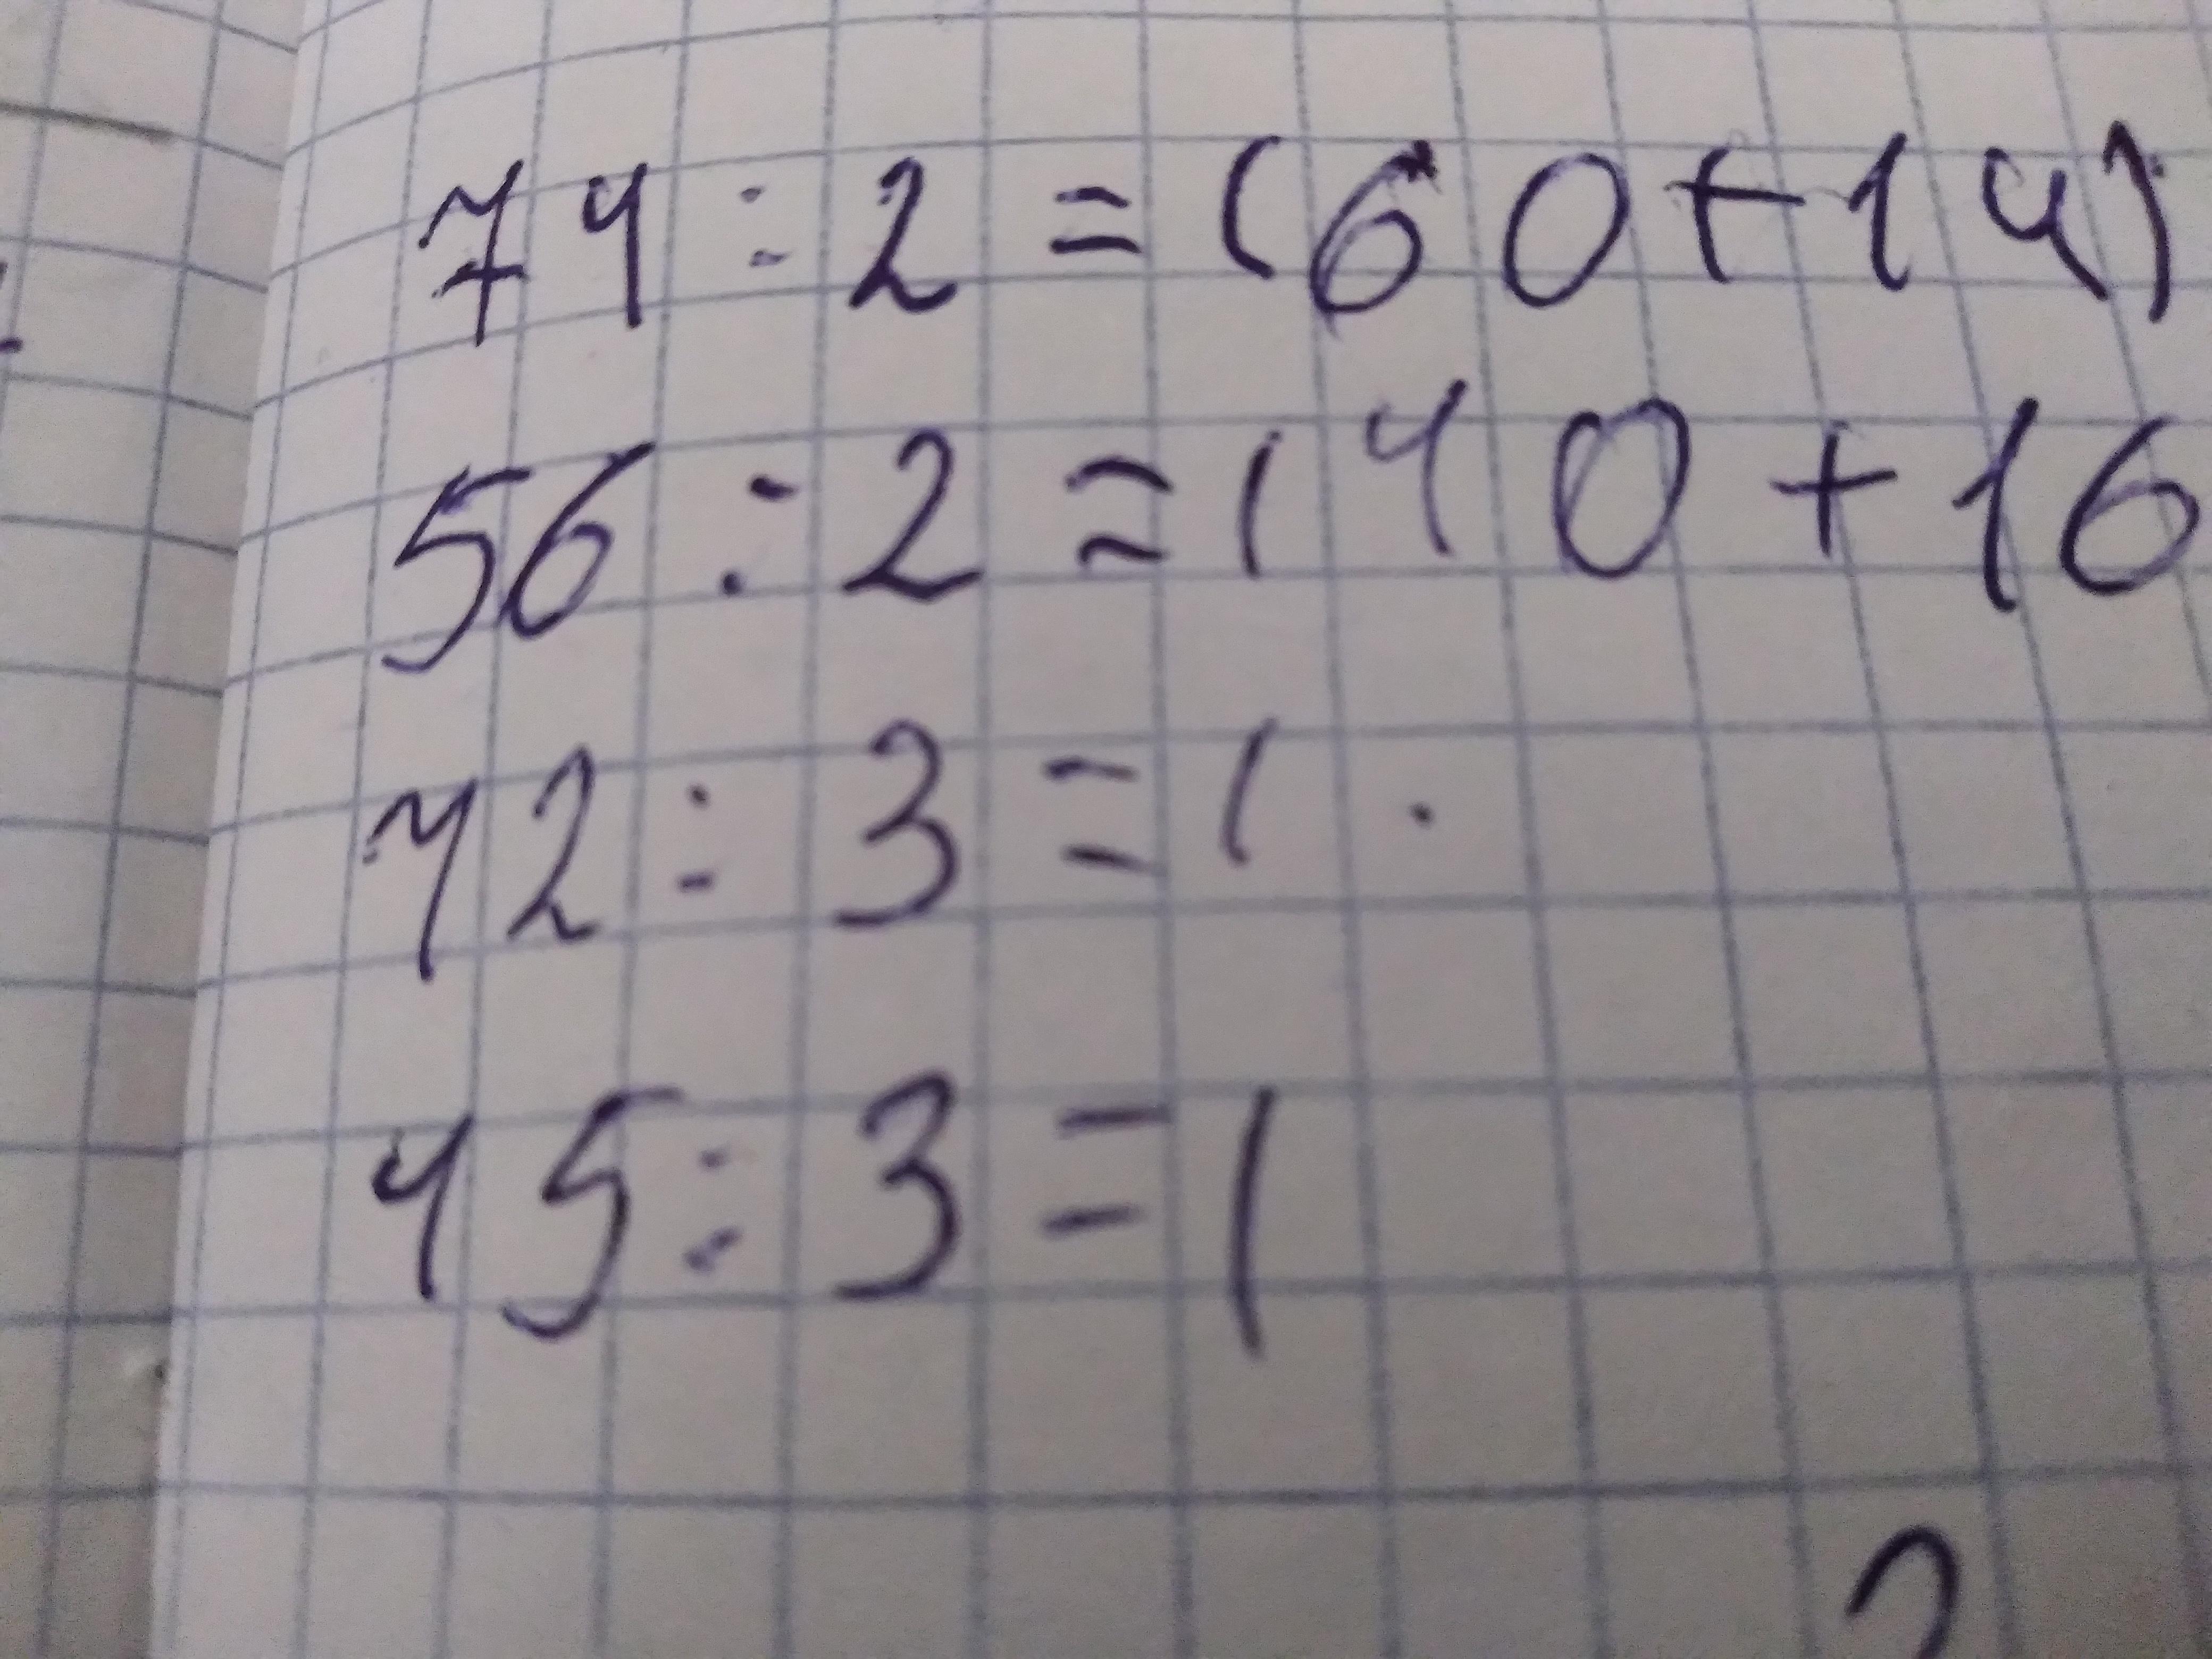 74 : 2 = (60+14)
56 : 2 = (40 + 16
72 : 3 = ( .
45 : 3 = (